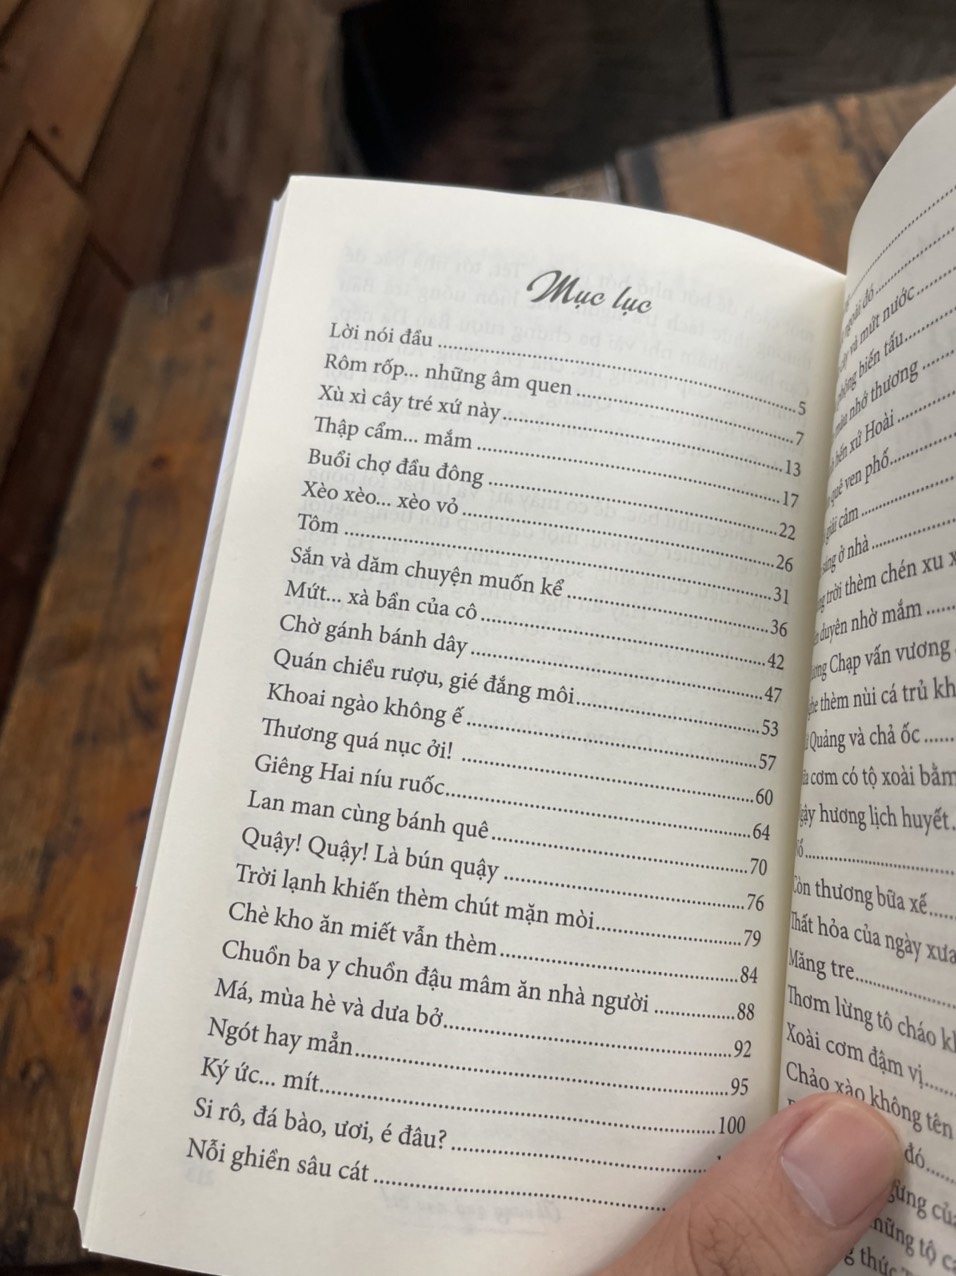 Mục lục
Lời nói đầu ........ 5
Rôm rốp... những âm quen ........ 7
Xù xì cây tré xứ này ........ 13
Thập cẩm... mắm ........ 17
Buổi chợ đầu đông ........ 22
Xèo xèo... xèo vỏ ........ 26
Tôm ........ 31
Sắn và dăm chuyện muốn kể ........ 36
Mứt... xà bần của cô ........ 42
Chờ gánh bánh dây ........ 47
Quán chiều rượu, gié đắng môi ........ 53
Khoai ngào không ế ........ 57
Thương quá nục ởi! ........ 60
Giêng Hai níu ruốc ........ 64
Lan man cùng bánh quê ........ 70
Quậy! Quậy! Là bún quậy ........ 76
Trời lạnh khiến thèm chút mặn mòi ........ 79
Chè kho ăn miết vẫn thèm ........ 84
Chuồn ba y chuồn đậu mâm ăn nhà người ........ 88
Má, mùa hè và dưa bở ........ 92
Ngót hay mẳn ........ 95
Ký ức... mít ........ 100
Si rô, đá bào, ươi, é đâu? ........
Nỗi ghiền sâu cát ........
ngoài đó ........
và mứt nước ........
phỏng biến tấu ........
nhớ thương ........
bến xứ Hoài ........
quê ven phố ........
giải cảm ........
sáng ở nhà ........
trời thèm chén xu
duyên nhờ mắm ........
Chạp vấn vương
thèm nùi cá trủ
Quảng và chả ốc ........
cơm có tộ xoài bằm
hương lịch huyết
Còn thương bữa xế ........
Thất hỏa của ngày xưa
Măng tre ........
Thơm lừng tô cháo
Xoài cơm đậm vị ........
Chảo xào không tên
đó ........
những tộ
thức